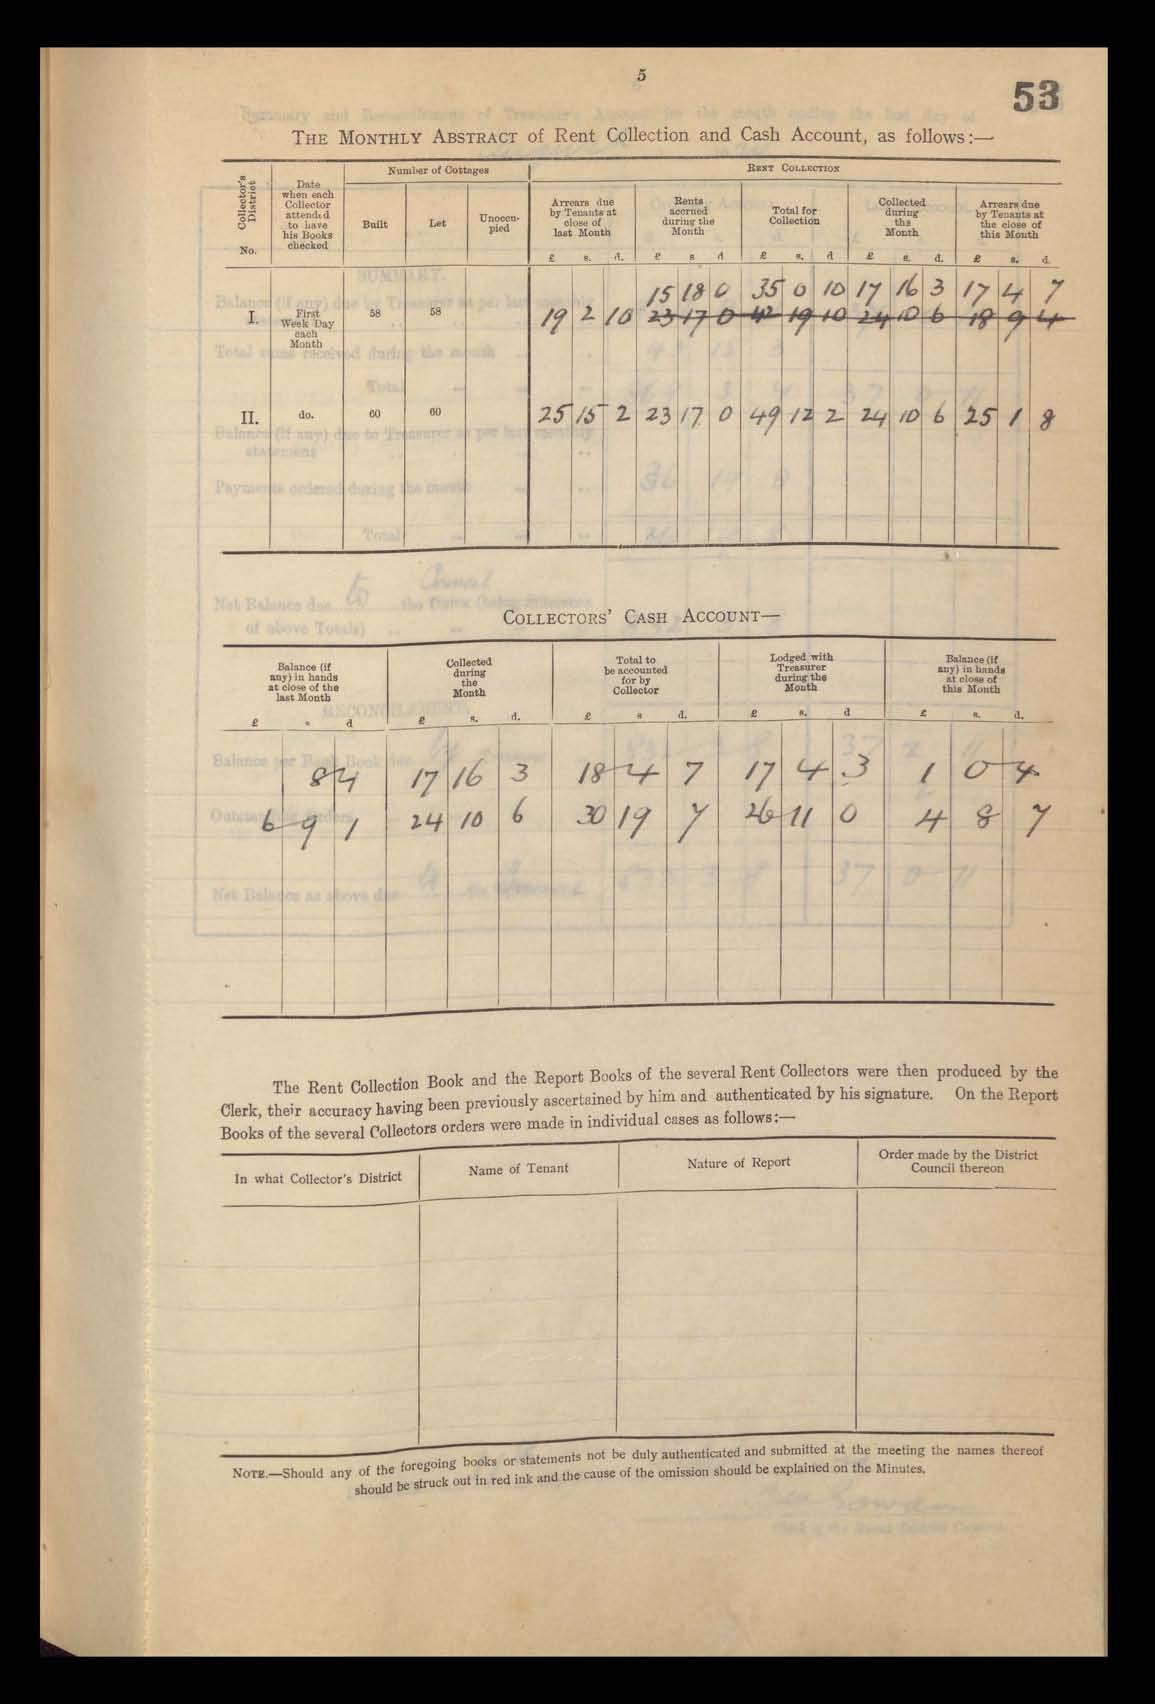 5
53
THE MONTHLY ABSTRACT of Rent Collection and Cash Account, as follows:—
Collector's District No.
Date when each Collector attended to have his Books checked
Number of Cottages
Built
Let
Unoccupied
RENT COLLECTION
Arrears due by Tenants at close of last Month
Rents accrued during the Month
Total for Collection
Collected during the Month
Arrears due by Tenants at the close of this Month
£ s. d. £ s d £ s. d £ s. d. £ s. d.
15 18 0 35 0 10 17 16 3 17 4 7
I. First Week Day each Month 58 58 19 2 10 23 17 0 42 19 10 24 10 6 18 9 4
II. do. 60 60 25 15 2 23 17 0 49 12 2 24 10 6 25 1 8
COLLECTORS' CASH ACCOUNT—
Balance (if any) in hands at close of the last Month
Collected during the Month
Total to be accounted for by Collector
Lodged with Treasurer during the Month
Balance (if any) in hands at close of this Month
£ s d £ s. d. £ s d. £ s. d £ s. d.
8 4 17 16 3 18 4 7 17 4 3 1 0 4
6 9 1 24 10 6 30 19 7 26 11 0 4 8 7
The Rent Collection Book and the Report Books of the several Rent Collectors were then produced by the
Clerk, their accuracy having been previously ascertained by him and authenticated by his signature. On the Report
Books of the several Collectors orders were made in individual cases as follows:—
In what Collector's District
Name of Tenant
Nature of Report
Order made by the District Council thereon
NOTE.—Should any of the foregoing books or statements not be duly authenticated and submitted at the meeting the names thereof
should be struck out in red ink and the cause of the omission should be explained on the Minutes.